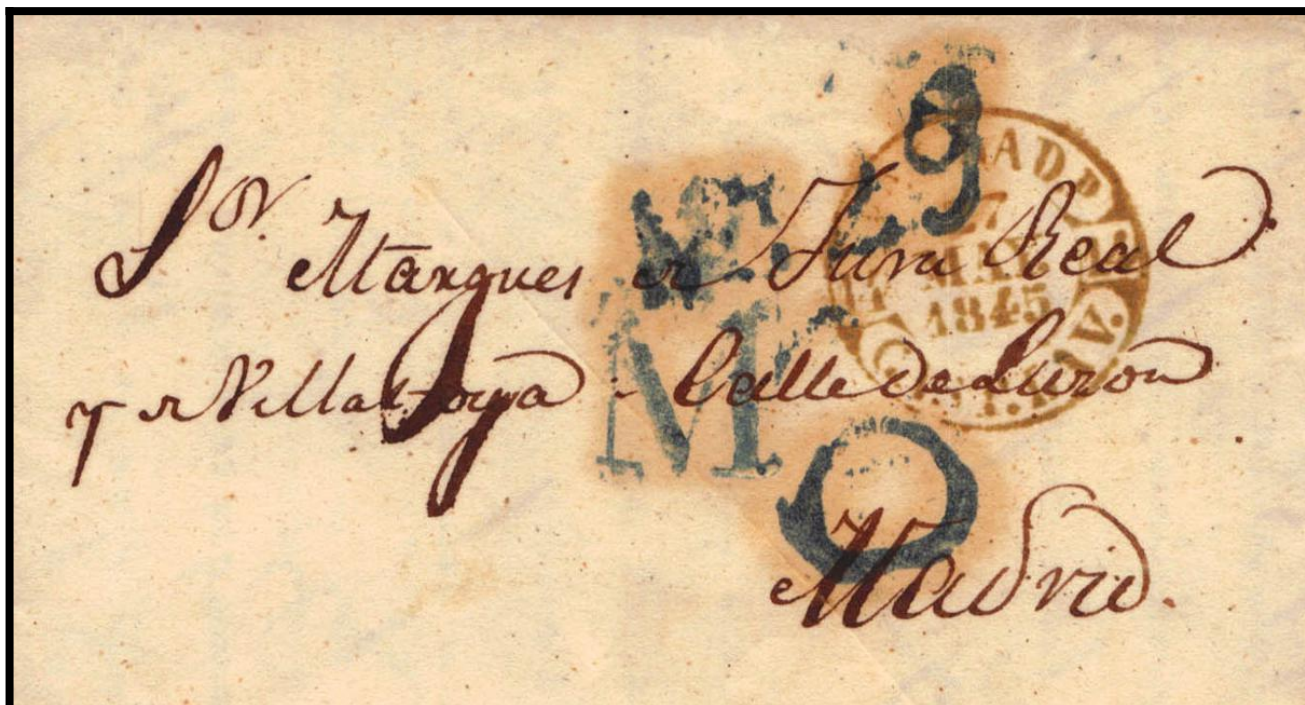 Sor. Marques de Fura Real
y de Villatoya - Calle de Luzon
Madrid.
19
M
O
MADR
27
MAY
1845